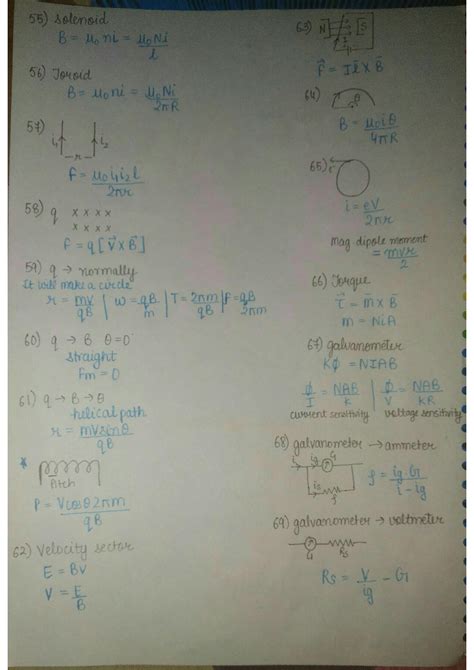 55) Solenoid
B = μ₀ni = μ₀Ni/l
56) Toroid
B = μ₀ni = μ₀Ni/2πR
57)
i₁ i₂
r
F = μ₀i₁i₂l/2πr
58) q x x x x
x x x x
F = q[v⃗ x B⃗]
59) q → normally
It will make a circle
r = mv/qB | ω = qB/m | T = 2πm/qB | f = qB/2πm
60) q → B θ=0°
straight
Fm = 0
61) q → B → θ
helical path
r = mvsinθ/qB
*
Pitch
P = Vcosθ2πm/qB
62) Velocity sector
E = BV
V = E/B
63) N S
F⃗ = Il⃗ x B⃗
64) θ
B = μ₀iθ/4πR
65)
i = eV/2πr
mag. dipole moment
= mvr/2
66) Torque
τ⃗ = m⃗ x B⃗
m = NiA
67) galvanometer
Kϕ = NIAB
ϕ/I = NAB/K | ϕ/V = NAB/KR
current sensitivity voltage sensitivity
68) galvanometer → ammeter
i ig G
is
f
f = ig.G/i - ig
69) galvanometer → voltmeter
G Rs
Rs = V/ig - G